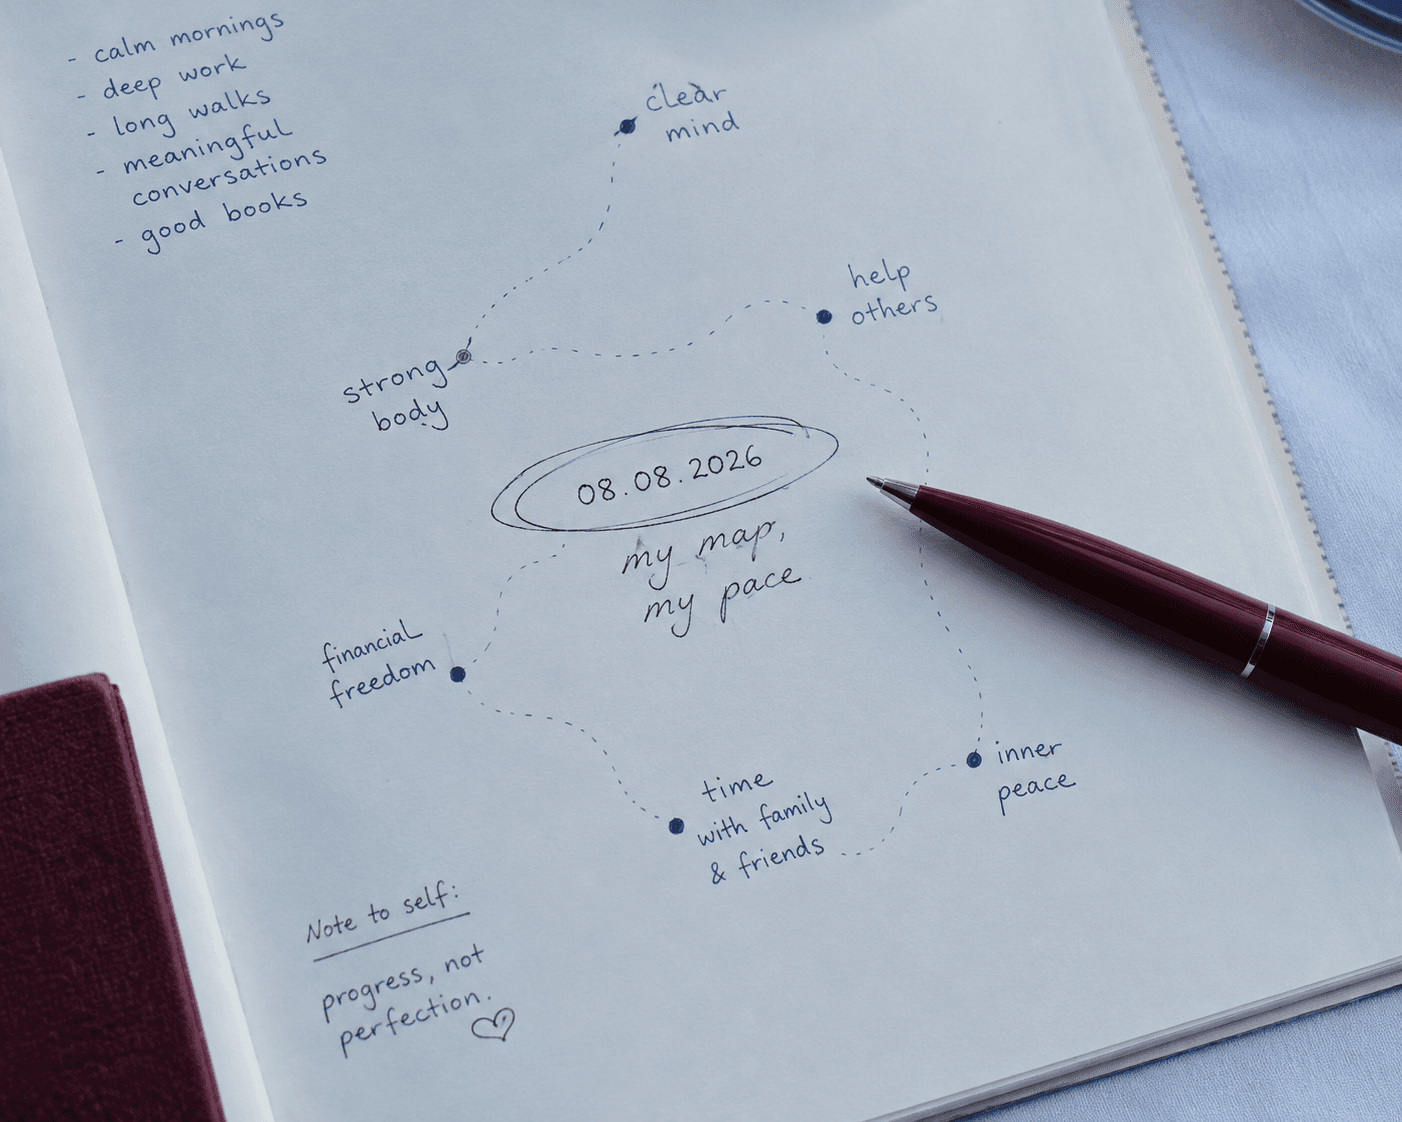 - calm mornings
- deep work
- long walks
- meaningful
conversations
- good books
clear
mind
help
others
strong
body
08.08.2026
my map,
my pace
financial
freedom
time
with family
& friends
inner
peace
Note to self:
progress, not
perfection.